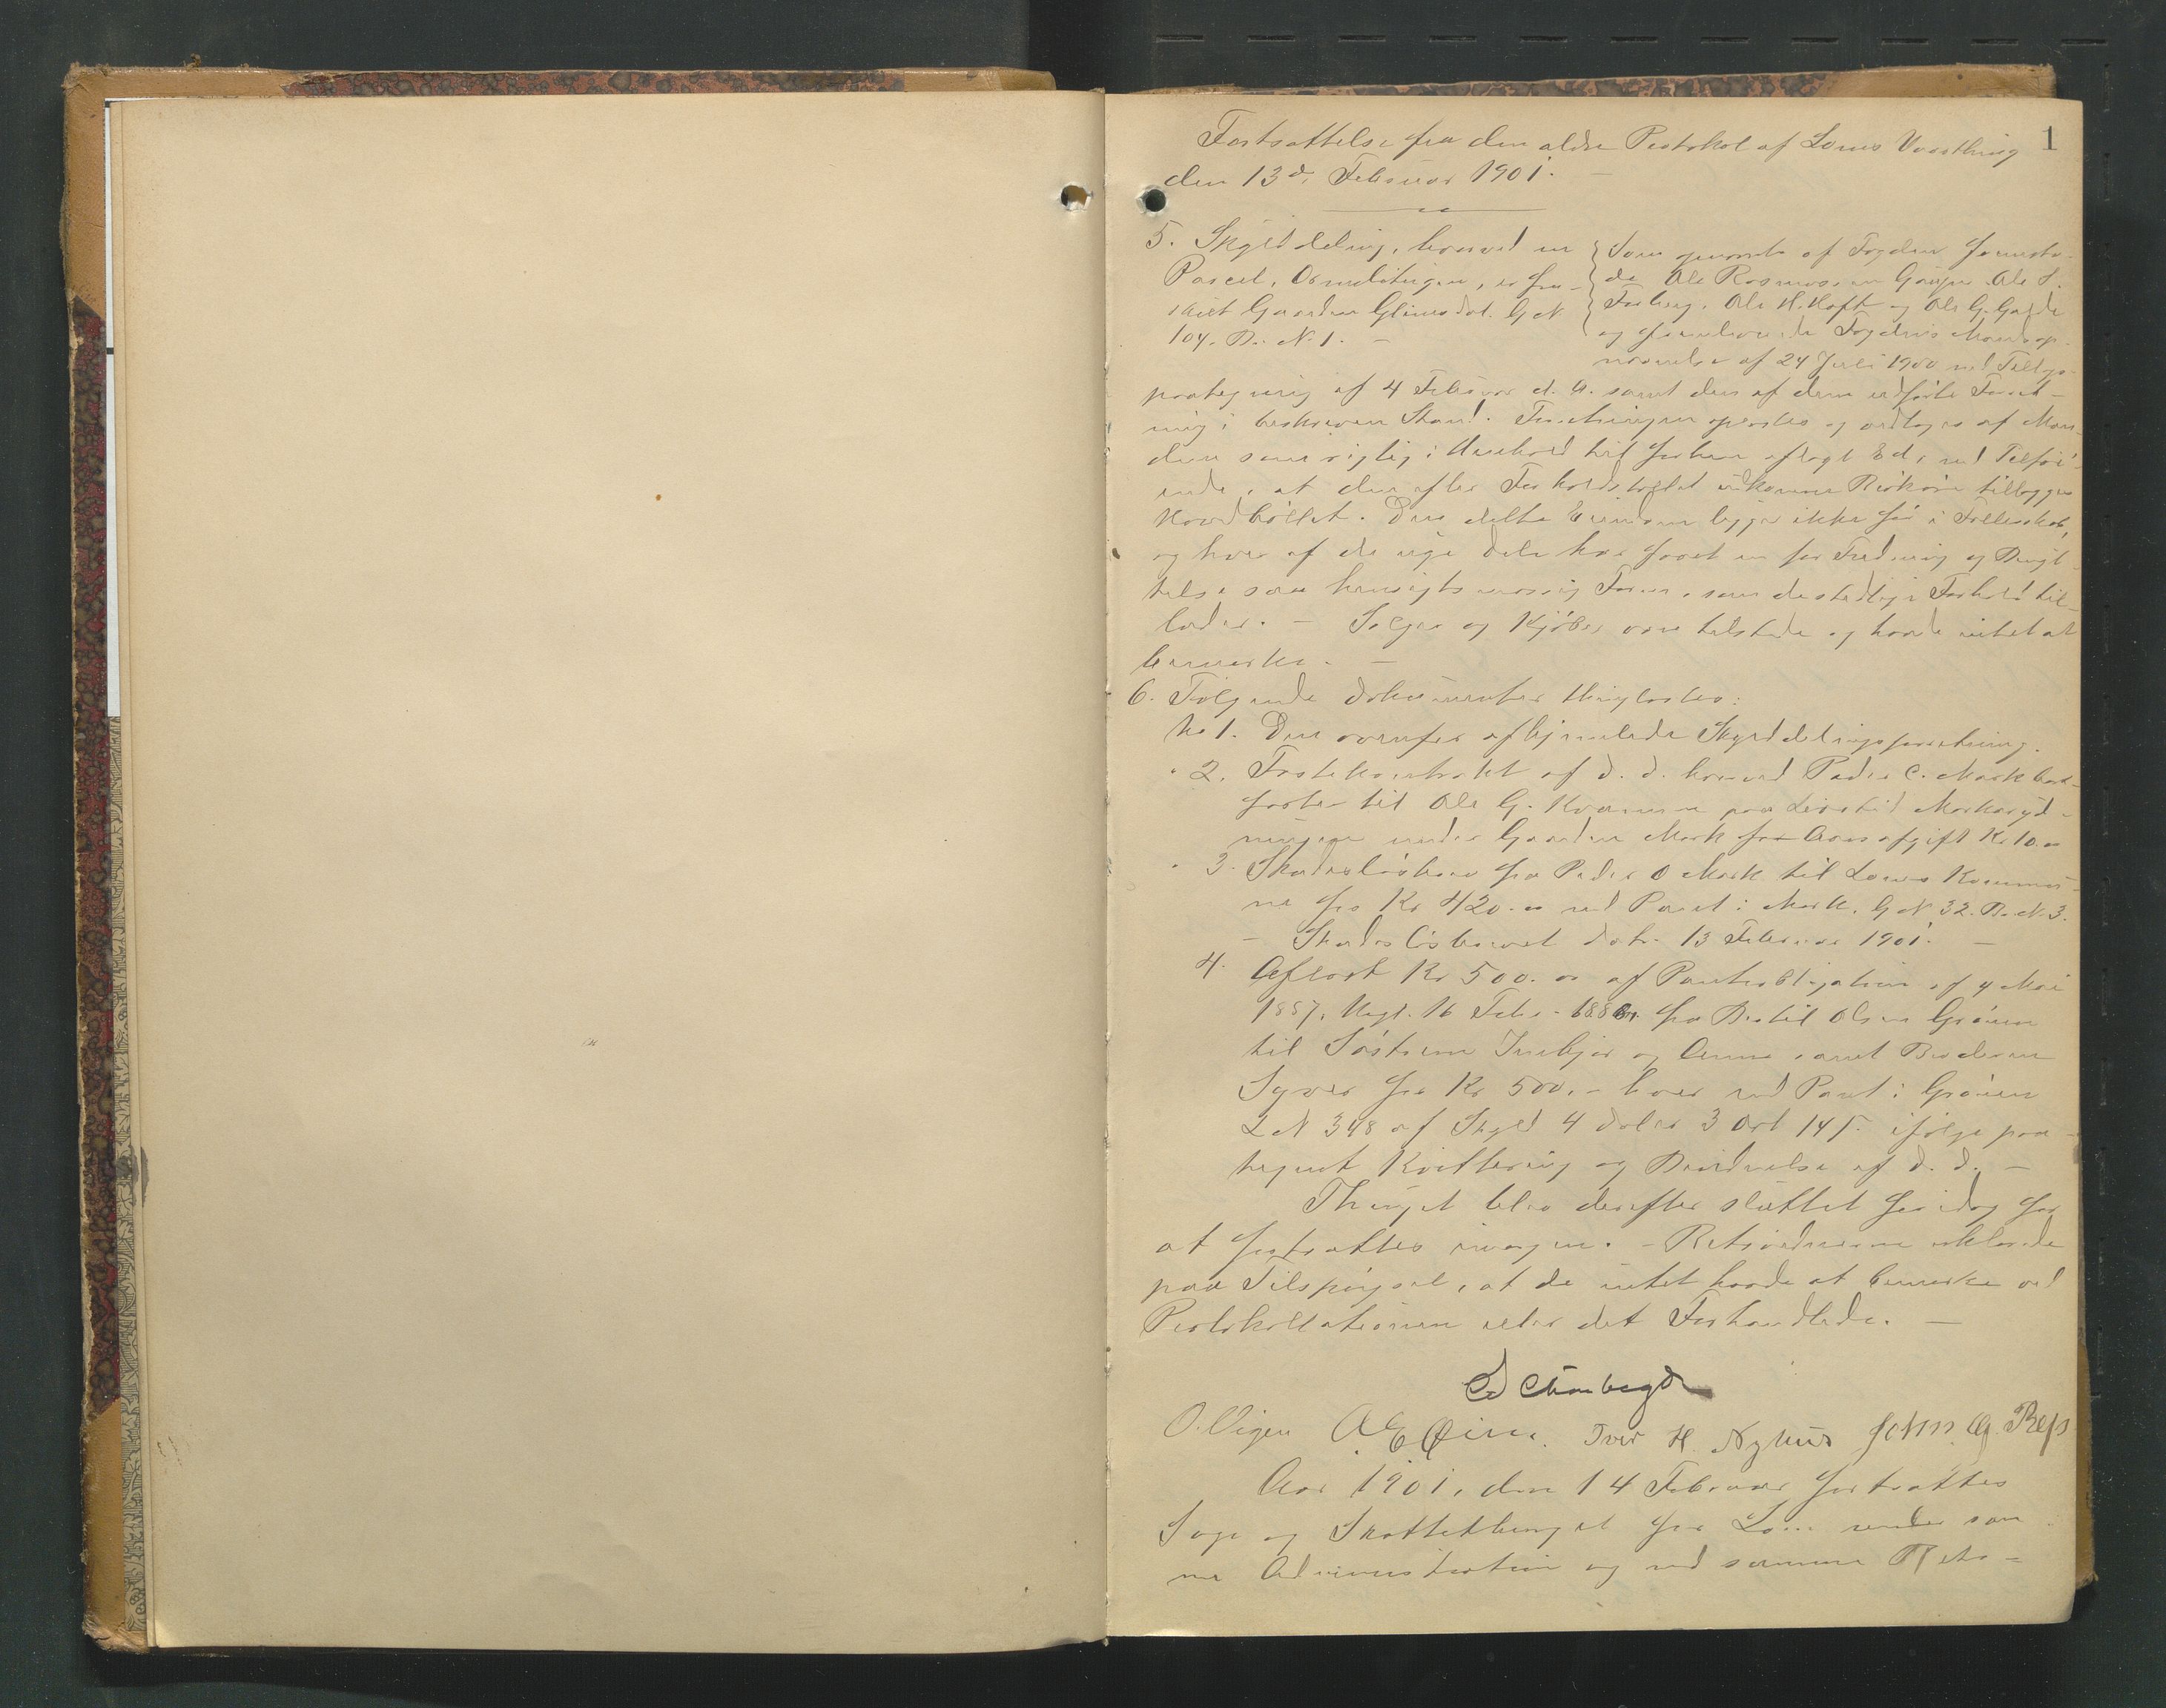 1
Fortsættelse fra den ældre Protokol af Loms Vaarthing
den 13de Februar 1901. —
5. Skylddeling, hvorved en
Parcel, er fra-
skilt Gaarden Glimsdal. G N
104. Br. N. 1. —
Som opnævnte af Fogden fremstod
de Ole Rasmussen Ole S.
Forberg, Ole H. Hoft og Ole G. Garde
og fremleverede Fogdens Mandsop-
nævnelse af 24 Juli 1900 med Tillægs-
paategning af 4 Februar d. A. samt den af dem udførte Forret-
ning i beskreven Stand. Forretningen oplæstes og vedtoges af Mæn-
dene som rigtig i Henhold til forhen aflagt Ed, med Tilføi-
ende, at den efter Forholdstallet udkomne Brøkøre tillægges
Hovedbøllet. Den delte Eiendom ligger ikke før i Fællesskab,
og hver af de nye Dele har faaet en for Fredning og Benyt-
telse saa hensigtsmæssig Form, som de stedlige Forhold til-
lader. — Sælger og Kjøber vare tilstede og havde intet at
bemærke. —
6. Følgende Dokumenter thinglæstes:
No 1. Den ovenfor afhjemlede Skylddelingsforretning.
" 2. Fæstekontrakt af d. d. hvorved Peder C. Mork bort-
fæster til Ole G. Kvamme paa Livstid Morkaryd-
ningen under Gaarden Mork for Aarsafgift Kr 10.00
" 3. Skadesløsbrev fra Peder O Mork til Loms Kommu-
ne for Kr 420.00 med Pant i Mork, G N 32. Br. N. 3.
— Skadesløsbrevet dat. 13 Februar 1901. —
4. Aflæst Kr 500.00 af Pantobligation af 4 Mai
1887, thgl. 16 Febr. fra Bertil Olsen Grønen
til Søstrene Inebjør og Anne samt Broderen
Syver for Kr 500.- hver med Pant i Grønen
L N 348 af Skyld 4 Daler 3 Ort 14 S. ifølge paa-
tegnet Kvittering og Begjærelse af d. d. —
Thinget blev derefter sluttet for idag for
at fortsættes imorgen. – Retsvidnerne erklærede
paa Tilspørgsel, at de intet havde at bemærke ved
Protokollationen eller det Forhandlede. —
O. Vigen A E Øien. Iver H. Nyhus John G. Rep
Aar 1901, den 14 Februar fortsattes
Sage og Skattethinget for Lom under sam-
me Administration og med samme Rets-